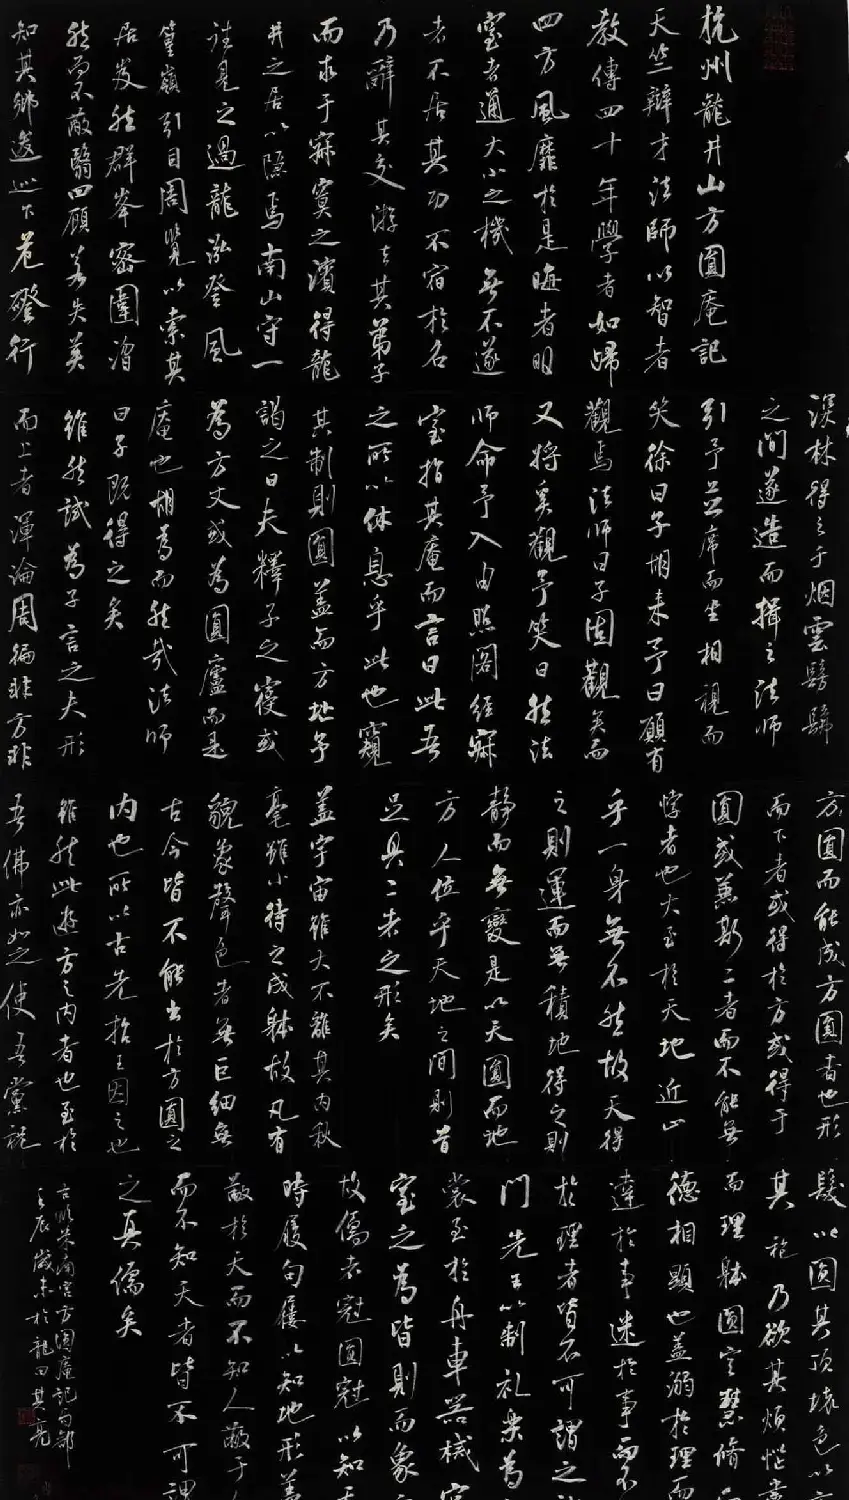 杭州龍井山方圓庵記
天竺辯才法師以智者
教傳四十年學者如歸
四方風靡於是晦者明
窒者通大小之機無不遂
者不居其功不宿於名
乃辭其交游去其弟子
而求于寂寞之濱得龍
井之居以隱焉南山守一
往見之過龍泓登風
篁嶺引目周覽以索其
居岌然群峯密圍溜
然而不蔽翳四顧若失莫
知其鄉逡巡下危磴行
深林得之于烟雲髣髴
之間遂造而揖之法師
引予並席而坐相視而
笑徐曰子胡来予曰願有
觀焉法師曰子固觀矣而
又將奚觀予笑曰然法
師命予入由照閣經寂
室指其庵而言曰此吾
之所以休息乎此也窺
其制則圓蓋而方址予
謁之曰夫釋子之寢或
為方丈或為圓廬而是
庵也胡為而然哉法師
曰子既得之矣
雖然試為子言之夫形
而上者渾淪周徧非方非
方圓而能成方圓者也形
而下者或得於方或得于
圓或兼斯二者而不能無
悖者也大至於天地近止
乎一身無不然故天得
之則運而無積地得之則
靜而無變是以天圓而地
方人位乎天地之間則首
足具二者之形矣
蓋宇宙雖大不離其內秋
毫雖小待之成躰故凡有
貌象聲色者無巨細無
古今皆不能出於方圓之
內也所以古先哲王因之也
雖然此遊方之內者也至於
吾佛亦如之使吾黨祝
髮以圓其頂壞色以方
其袍乃欲其煩惱盡
而理躰圓定慧修
德相顯也蓋溺於理而
達於事迷於事而不
於理者皆不可謂之
門先王以制礼樂為
裳至於舟車器械宮
室之為皆則而象
故儒者冠圓冠以知天
時履句屨以知地形蓋
蔽於天而不知人蔽于
而不知天者皆不可謂
之真儒矣
米南宮方圓庵記
壬辰歲末於龍田其亮